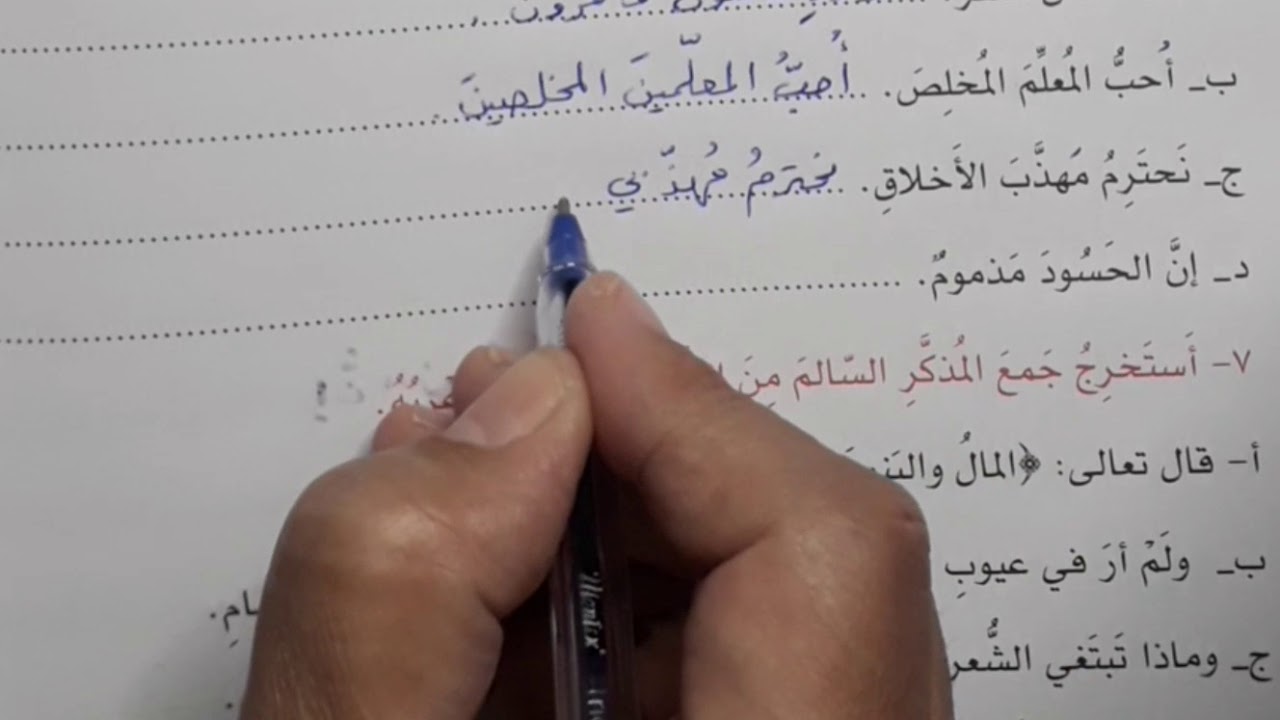 ب- أُحبُّ المُعلِّمَ المُخلِصَ. أُحبُّ المعلّمينَ المخلصينَ.
ج- نَحتَرِمُ مُهذَّبَ الأَخلاقِ. نحترمُ مُهذّبي
د- إنَّ الحَسُودَ مَذمومٌ.
٧- أَستَخرِجُ جَمعَ المُذكَّرِ السّالمَ مِنَ
أ- قال تعالى: ﴿المالُ والبَنونَ
ب- ولَمْ أرَ في عيوبِ
ج- وماذا تَبتَغي الشُّعر